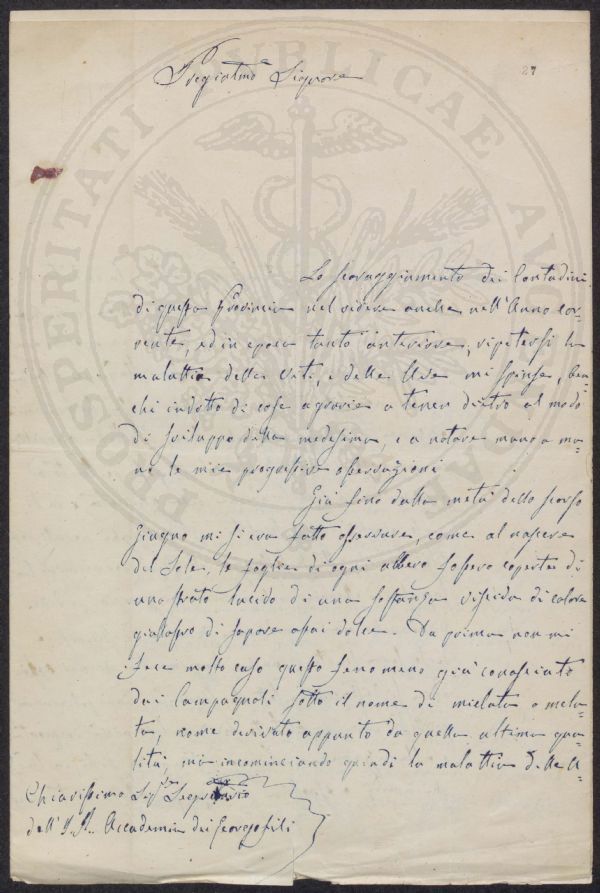 27
Pregiatmo Signore
Lo scoraggiamento dei Contadini
di questa Provincia nel vedere anche nell'Anno cor-
rente, ed in epoca tanto anteriore, ripetersi la
malattia delle Viti, e delle Uve mi spinse, ben-
chè indotto di cose agrarie a tener dietro al modo
di sviluppo della medesima, e a notare mano a ma-
no le mie progressive osservazioni
Già fino dalla metà dello scorso
Giugno mi si era fatto osservare, come al nascere
del Sole, le foglie di ogni albero fossero coperte di
uno strato lucido di una sostanza viscida di colore
giallastro di sapore assai dolce. Da prima non mi
fece molto caso questo fenomeno già conosciuto
dai Campagnoli sotto il nome di mielata o mela-
ta, nome derivato appunto da quella ultima qua-
lità, ma incominciando quindi la malattia delle U-
Chiarissimo Sigr Segretario
dell'I. R. Accademia dei Georgofili
PROSPERITATI PUBLICAE AUGENDAE